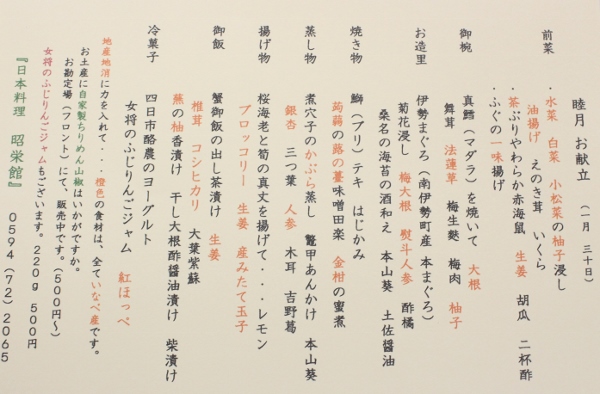 睦月 お献立 (一月 三十日)
前菜
・水菜 白菜 小松菜の柚子浸し
油揚げ えのき茸 いくら
・茶ぶりやわらか赤海鼠 生姜 胡瓜 二杯酢
・ふぐの一味揚げ
御椀 真鱈(マダラ)を焼いて 大根
舞茸 法蓮草 梅生麩 梅肉 柚子
お造里 伊勢まぐろ(南伊勢町産 本まぐろ)
菊花浸し 梅大根 熨斗人参 酢橘
桑名の海苔の酒和え 本山葵 土佐醤油
焼き物 鰤(ブリ)テキ はじかみ
蒟蒻の蕗の薹味噌田楽 金柑の蜜煮
蒸し物 煮穴子のかぶら蒸し 鼈甲あんかけ 本山葵
銀杏 三つ葉 人参 木耳 吉野葛
揚げ物 桜海老と筍の真丈を揚げて・・・レモン
ブロッコリー 生姜 産みたて玉子
御飯 蟹御飯の出し茶漬け 生姜
椎茸 コシヒカリ 大葉紫蘇
蕪の柚香漬け 干し大根酢醤油漬け 柴漬け
冷菓子 四日市酪農のヨーグルト
女将のふじりんごジャム 紅ほっぺ
地産地消に力を入れて・・・橙色の食材は、全ていなべ産です。
お土産に自家製ちりめん山椒はいかがですか。
お勘定場(フロント)にて、販売中です。(500円~)
女将のふじりんごジャムもございます。220g 500円
『日本料理 昭栄館』 0594(72)2065